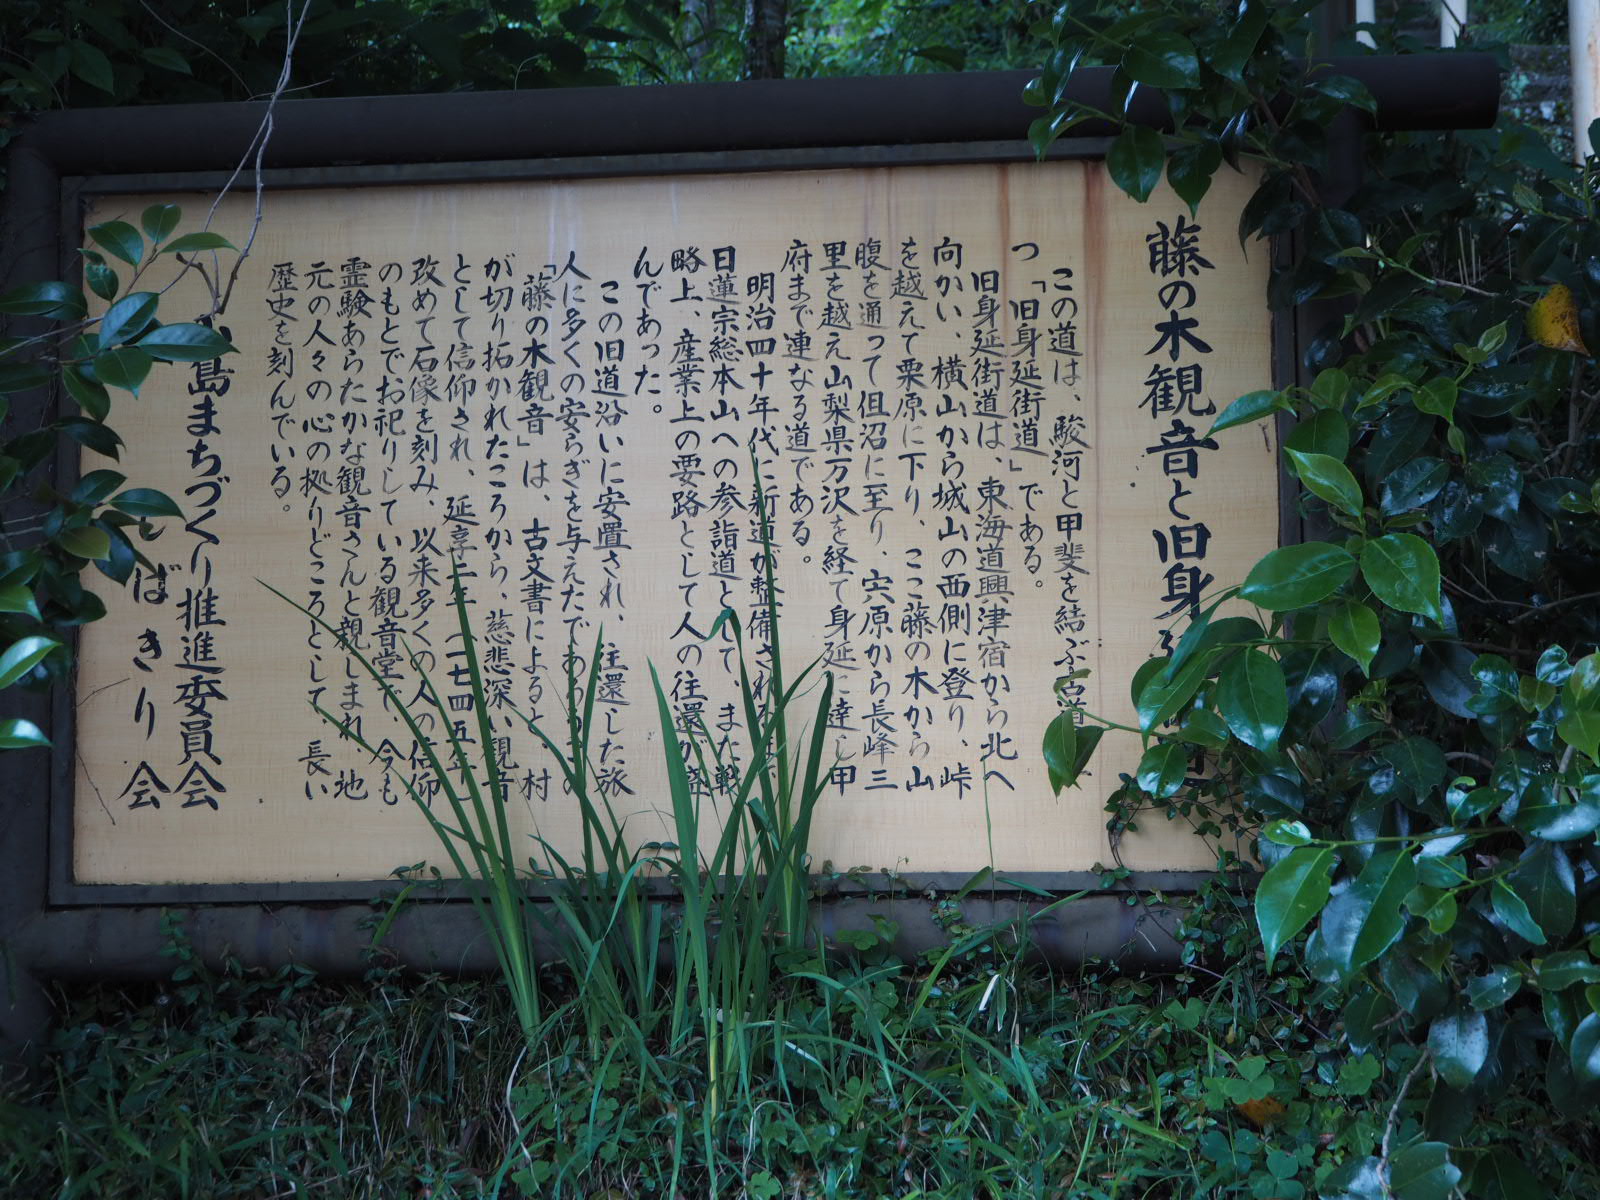 藤の木観音と旧身
この道は、駿河と甲斐を結ぶ古道
つ「旧身延街道」である。
旧身延街道は、東海道興津宿から北へ
向かい、横山から城山の西側に登り、峠
を越えて栗原に下り、ここ藤の木から山
腹を通って但沼に至り、宍原から長峰三
里を越え山梨県万沢を経て身延に達し甲
府まで連なる道である。
明治四十年代に新道が整備される
日蓮宗総本山への参詣道として、また戦
略上、産業上の要路として人の往還が盛
んであった。
この旧道沿いに安置され、往還した旅
人に多くの安らぎを与えたであろう
「藤の木観音」は、古文書によると、村
が切り拓かれたころから、慈悲深い観音
として信仰され、延享二年（一七四五年）
改めて石像を刻み、以来多くの人の信仰
のもとでお祀りしている観音堂で、今も
霊験あらたかな観音さんと親しまれ、地
元の人々の心の拠りどころとして、長い
歴史を刻んでいる。
島まちづくり推進委員会
しばきり会